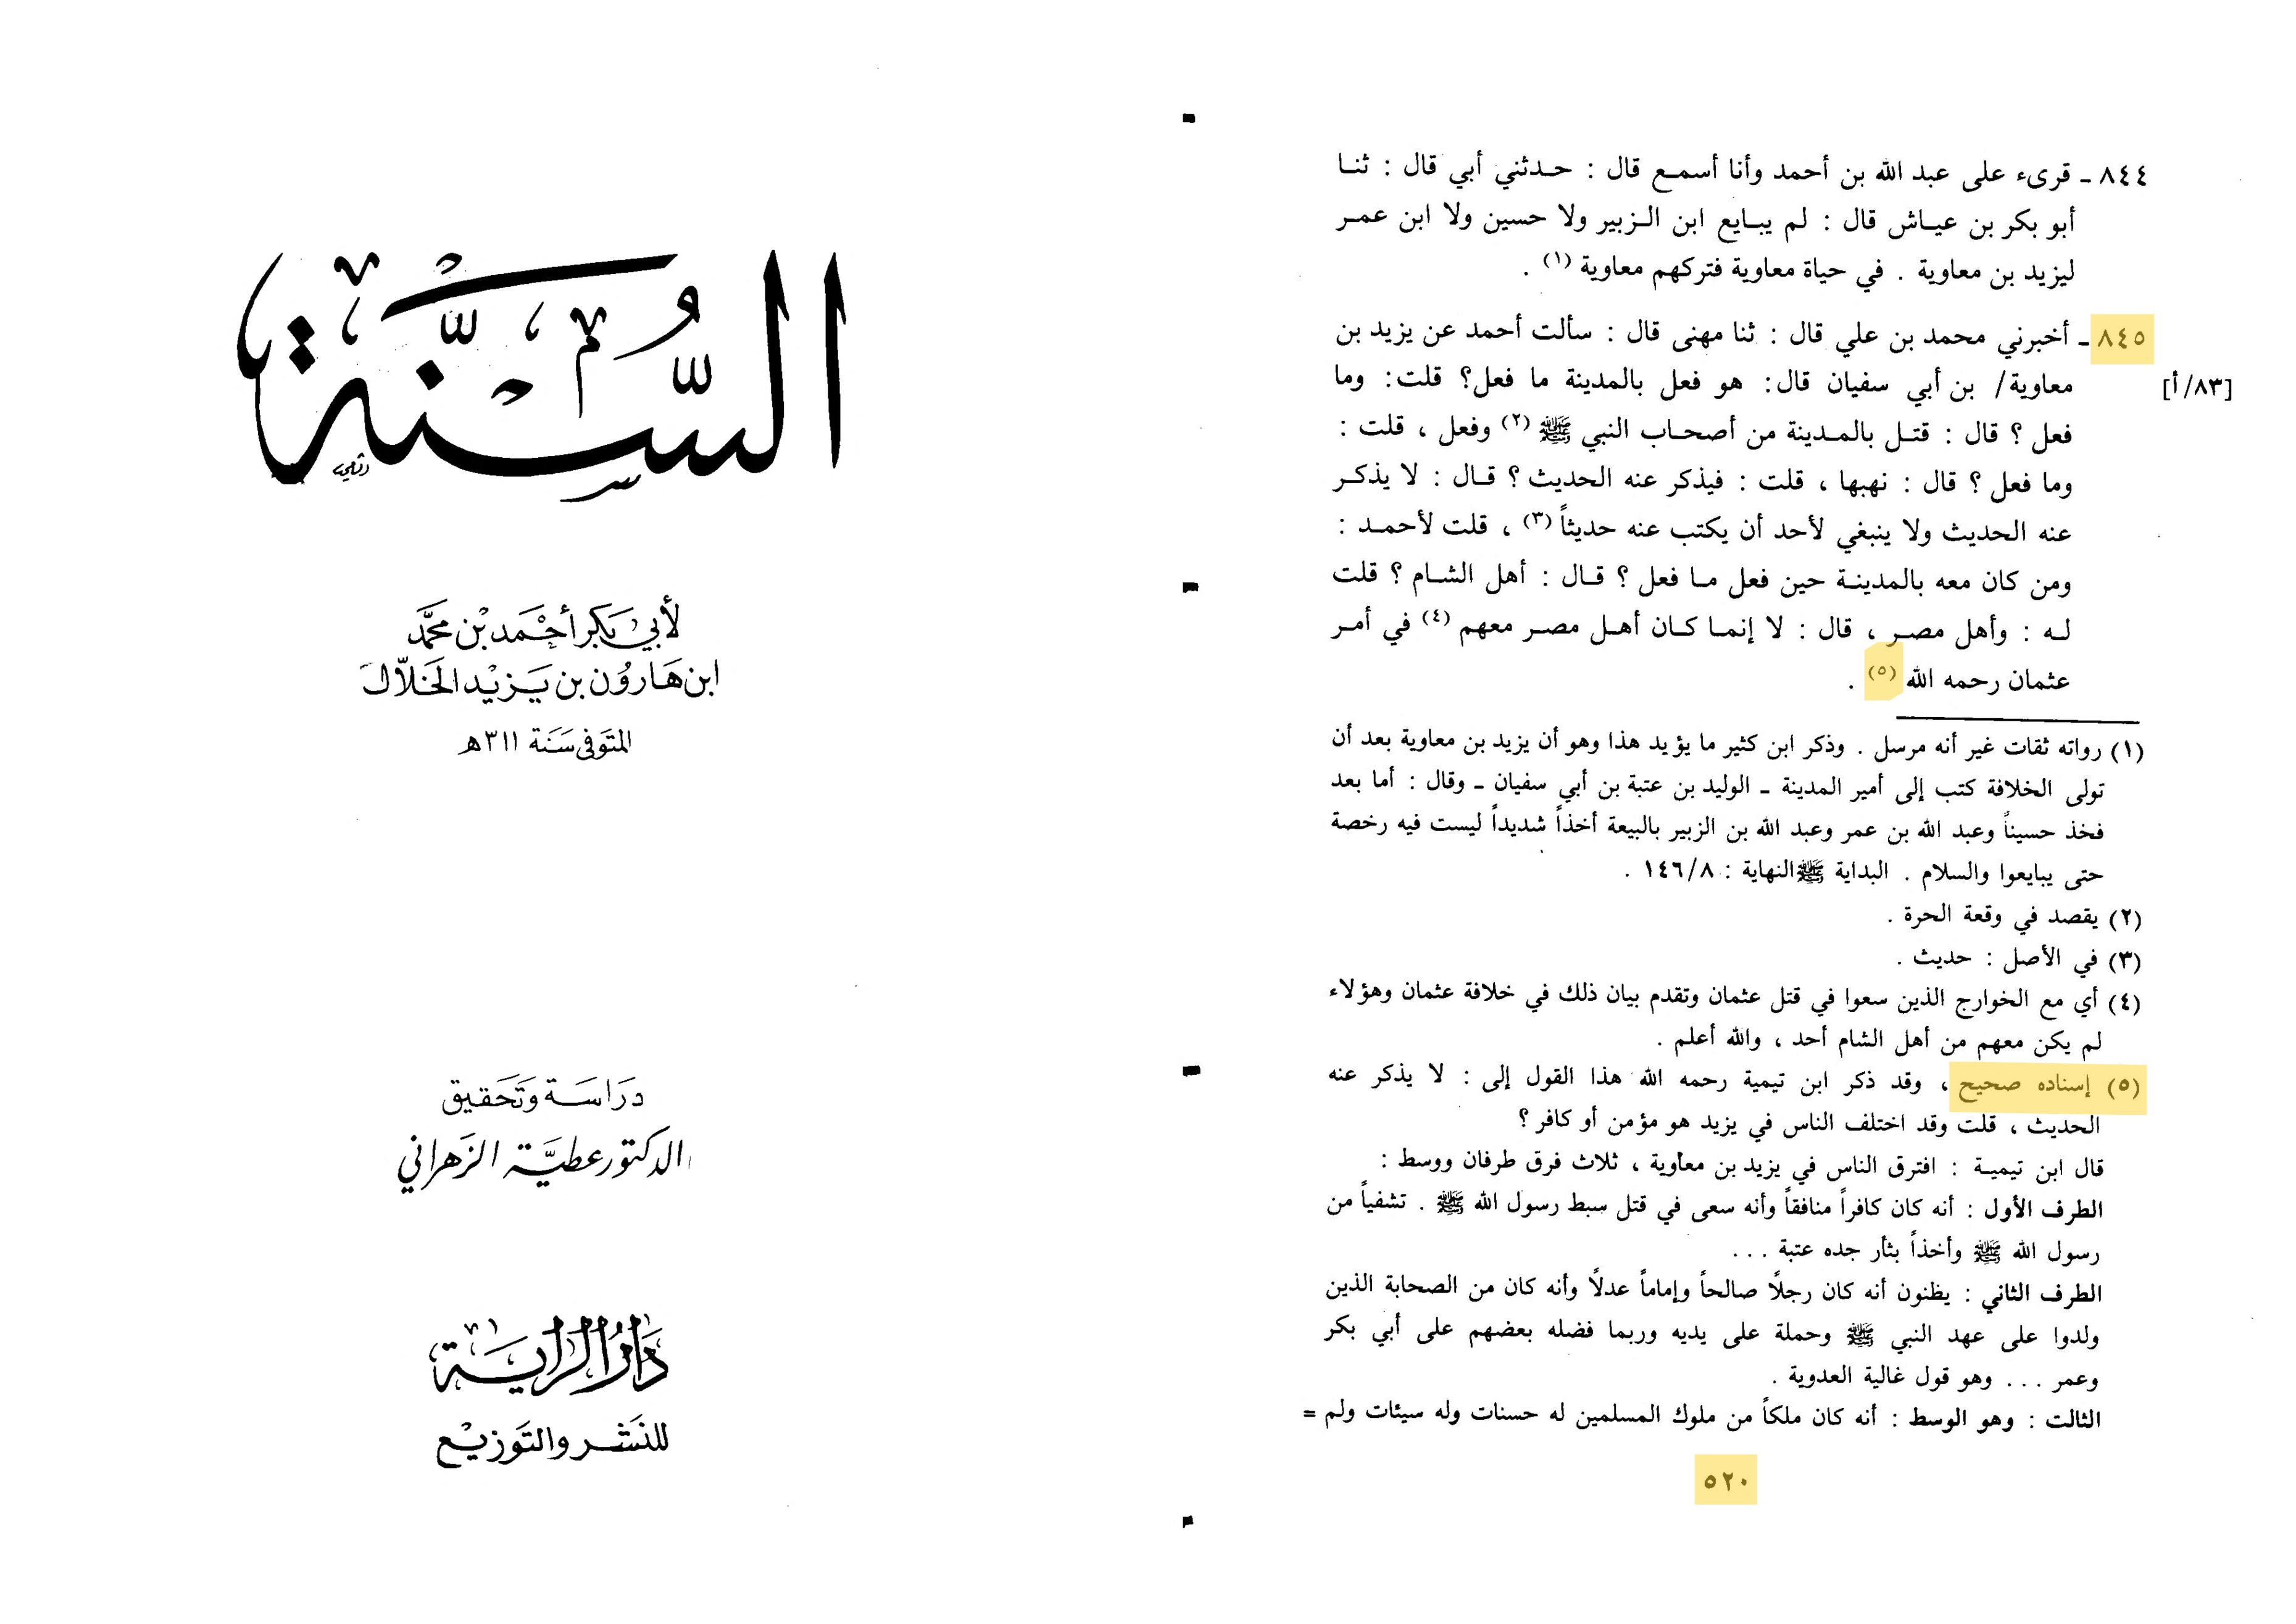 السنة
لأبي بكر أحمد بن محمد
ابن هارون بن يزيد الخلال
المتوفى سنة ٣١١ هـ
دراسة وتحقيق
الدكتور عطية الزهراني
دار الراية
للنشر والتوزيع
٨٤٤ ـ قرىء على عبد الله بن أحمد وأنا أسمع قال : حدثني أبي قال : ثنا
أبو بكر بن عياش قال : لم يبايع ابن الزبير ولا حسين ولا ابن عمر
ليزيد بن معاوية . في حياة معاوية فتركهم معاوية (١) .
٨٤٥ ـ أخبرني محمد بن علي قال : ثنا مهنى قال : سألت أحمد عن يزيد بن
معاوية/ بن أبي سفيان قال: هو فعل بالمدينة ما فعل؟ قلت: وما
[٨٣/أ]
فعل ؟ قال : قتل بالمدينة من أصحاب النبي ﷺ (٢) وفعل ، قلت :
وما فعل ؟ قال : نهبها ، قلت : فيذكر عنه الحديث ؟ قال : لا يذكر
عنه الحديث ولا ينبغي لأحد أن يكتب عنه حديثاً (٣) ، قلت لأحمد :
ومن كان معه بالمدينة حين فعل ما فعل ؟ قال : أهل الشام ؟ قلت
له : وأهل مصر ، قال : لا إنما كان أهل مصر معهم (٤) في أمر
عثمان رحمه الله (٥) .
(١) رواته ثقات غير أنه مرسل . وذكر ابن كثير ما يؤيد هذا وهو أن يزيد بن معاوية بعد أن
تولى الخلافة كتب إلى أمير المدينة ـ الوليد بن عتبة بن أبي سفيان ـ وقال : أما بعد
فخذ حسيناً وعبد الله بن عمر وعبد الله بن الزبير بالبيعة أخذاً شديداً ليست فيه رخصة
حتى يبايعوا والسلام . البداية ﷺالنهاية : ١٤٦/٨ .
(٢) يقصد في وقعة الحرة .
(٣) في الأصل : حديث .
(٤) أي مع الخوارج الذين سعوا في قتل عثمان وتقدم بيان ذلك في خلافة عثمان وهؤلاء
لم يكن معهم من أهل الشام أحد ، والله أعلم .
(٥) إسناده صحيح ، وقد ذكر ابن تيمية رحمه الله هذا القول إلى : لا يذكر عنه
الحديث ، قلت وقد اختلف الناس في يزيد هو مؤمن أو كافر ؟
قال ابن تيمية : افترق الناس في يزيد بن معاوية ، ثلاث فرق طرفان ووسط :
الطرف الأول : أنه كان كافراً منافقاً وأنه سعى في قتل سبط رسول الله ﷺ . تشفياً من
رسول الله ﷺ وأخذاً بثأر جده عتبة ...
الطرف الثاني : يظنون أنه كان رجلًا صالحاً وإماماً عدلًا وأنه كان من الصحابة الذين
ولدوا على عهد النبي ﷺ وحملة على يديه وربما فضله بعضهم على أبي بكر
وعمر ... وهو قول غالية العدوية .
الثالث : وهو الوسط : أنه كان ملكاً من ملوك المسلمين له حسنات وله سيئات ولم =
٥٢٠